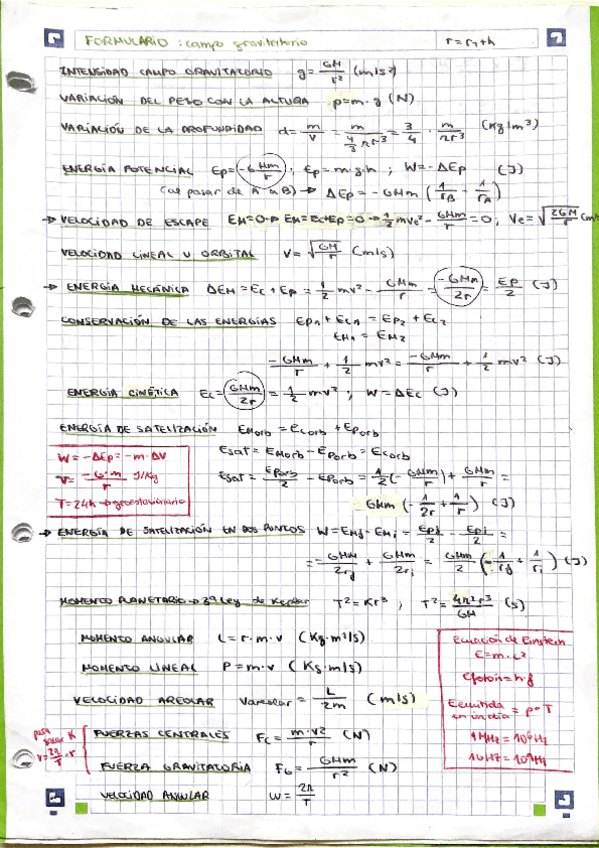 FORMULARIO: campo gravitatorio r = r_T + h
INTENSIDAD CAMPO GRAVITATORIO g = GM/r² (m/s²)
VARIACIÓN DEL PESO CON LA ALTURA p = m · g (N)
VARIACIÓN DE LA PROFUNDIDAD d = m/V = m/(4/3 πr³) = 3/4 · m/πr³ (Kg/m³)
ENERGÍA POTENCIAL Ep = -GMm/r ; Ep = m·g·h ; W = -ΔEp (J)
(al pasar de A a B) → ΔEp = -GMm (1/r_B - 1/r_A)
→ VELOCIDAD DE ESCAPE EM = 0 → EM = Ec + Ep = 0 → 1/2 mve² - GMm/r = 0; Ve = √(2GM/r) (m/s)
VELOCIDAD LINEAL U ORBITAL V = √(GM/r) (m/s)
→ ENERGÍA MECÁNICA ΔEM = Ec + Ep = 1/2 mv² - GMm/r = -GMm/2r = Ep/2 (J)
CONSERVACIÓN DE LAS ENERGÍAS Ep₁ + Ec₁ = Ep₂ + Ec₂
EM₁ = EM₂
-GMm/r + 1/2 mv² = -GMm/r + 1/2 mv² (J)
ENERGÍA CINÉTICA Ec = GMm/2r = 1/2 mv² ; W = ΔEc (J)
ENERGÍA DE SATELIZACIÓN EMorb = Ecorb + Eporb
Esat = EMorb - Eporb = Ecorb
Esat = Eporb/2 - Eporb = 1/2 (-GMm/r) + GMm/r =
GMm (-1/2r + 1/r) (J)
W = -ΔEp = -m·ΔV
V = -G·m/r J/Kg
T = 24h → geoestacionario
→ ENERGÍA DE SATELIZACIÓN EN DOS PUNTOS W = EMf - EMi = Epf/2 - Epi/2 =
= -GMm/2rf + GMm/2ri = GMm/2 (-1/rf + 1/ri) (J)
MOMENTO PLANETARIO → 3ª Ley de Kepler T² = Kr³ ; T² = 4π²r³/GM (s)
MOMENTO ANGULAR L = r·m·v (Kg·m²/s)
MOMENTO LINEAL P = m·v (Kg·m/s)
VELOCIDAD AREOLAR Vareolar = L/2m (m/s)
FUERZAS CENTRALES Fc = m·v²/r (N)
FUERZA GRAVITATORIA FG = GMm/r² (N)
VELOCIDAD ANGULAR W = 2π/T
para sacar
v = 2π/T · r
Ecuación de Einstein
E = m·c²
Efotón = h·f
Eemitida en un día = P·T
1MHz = 10⁶Hz
1GHz = 10⁹Hz